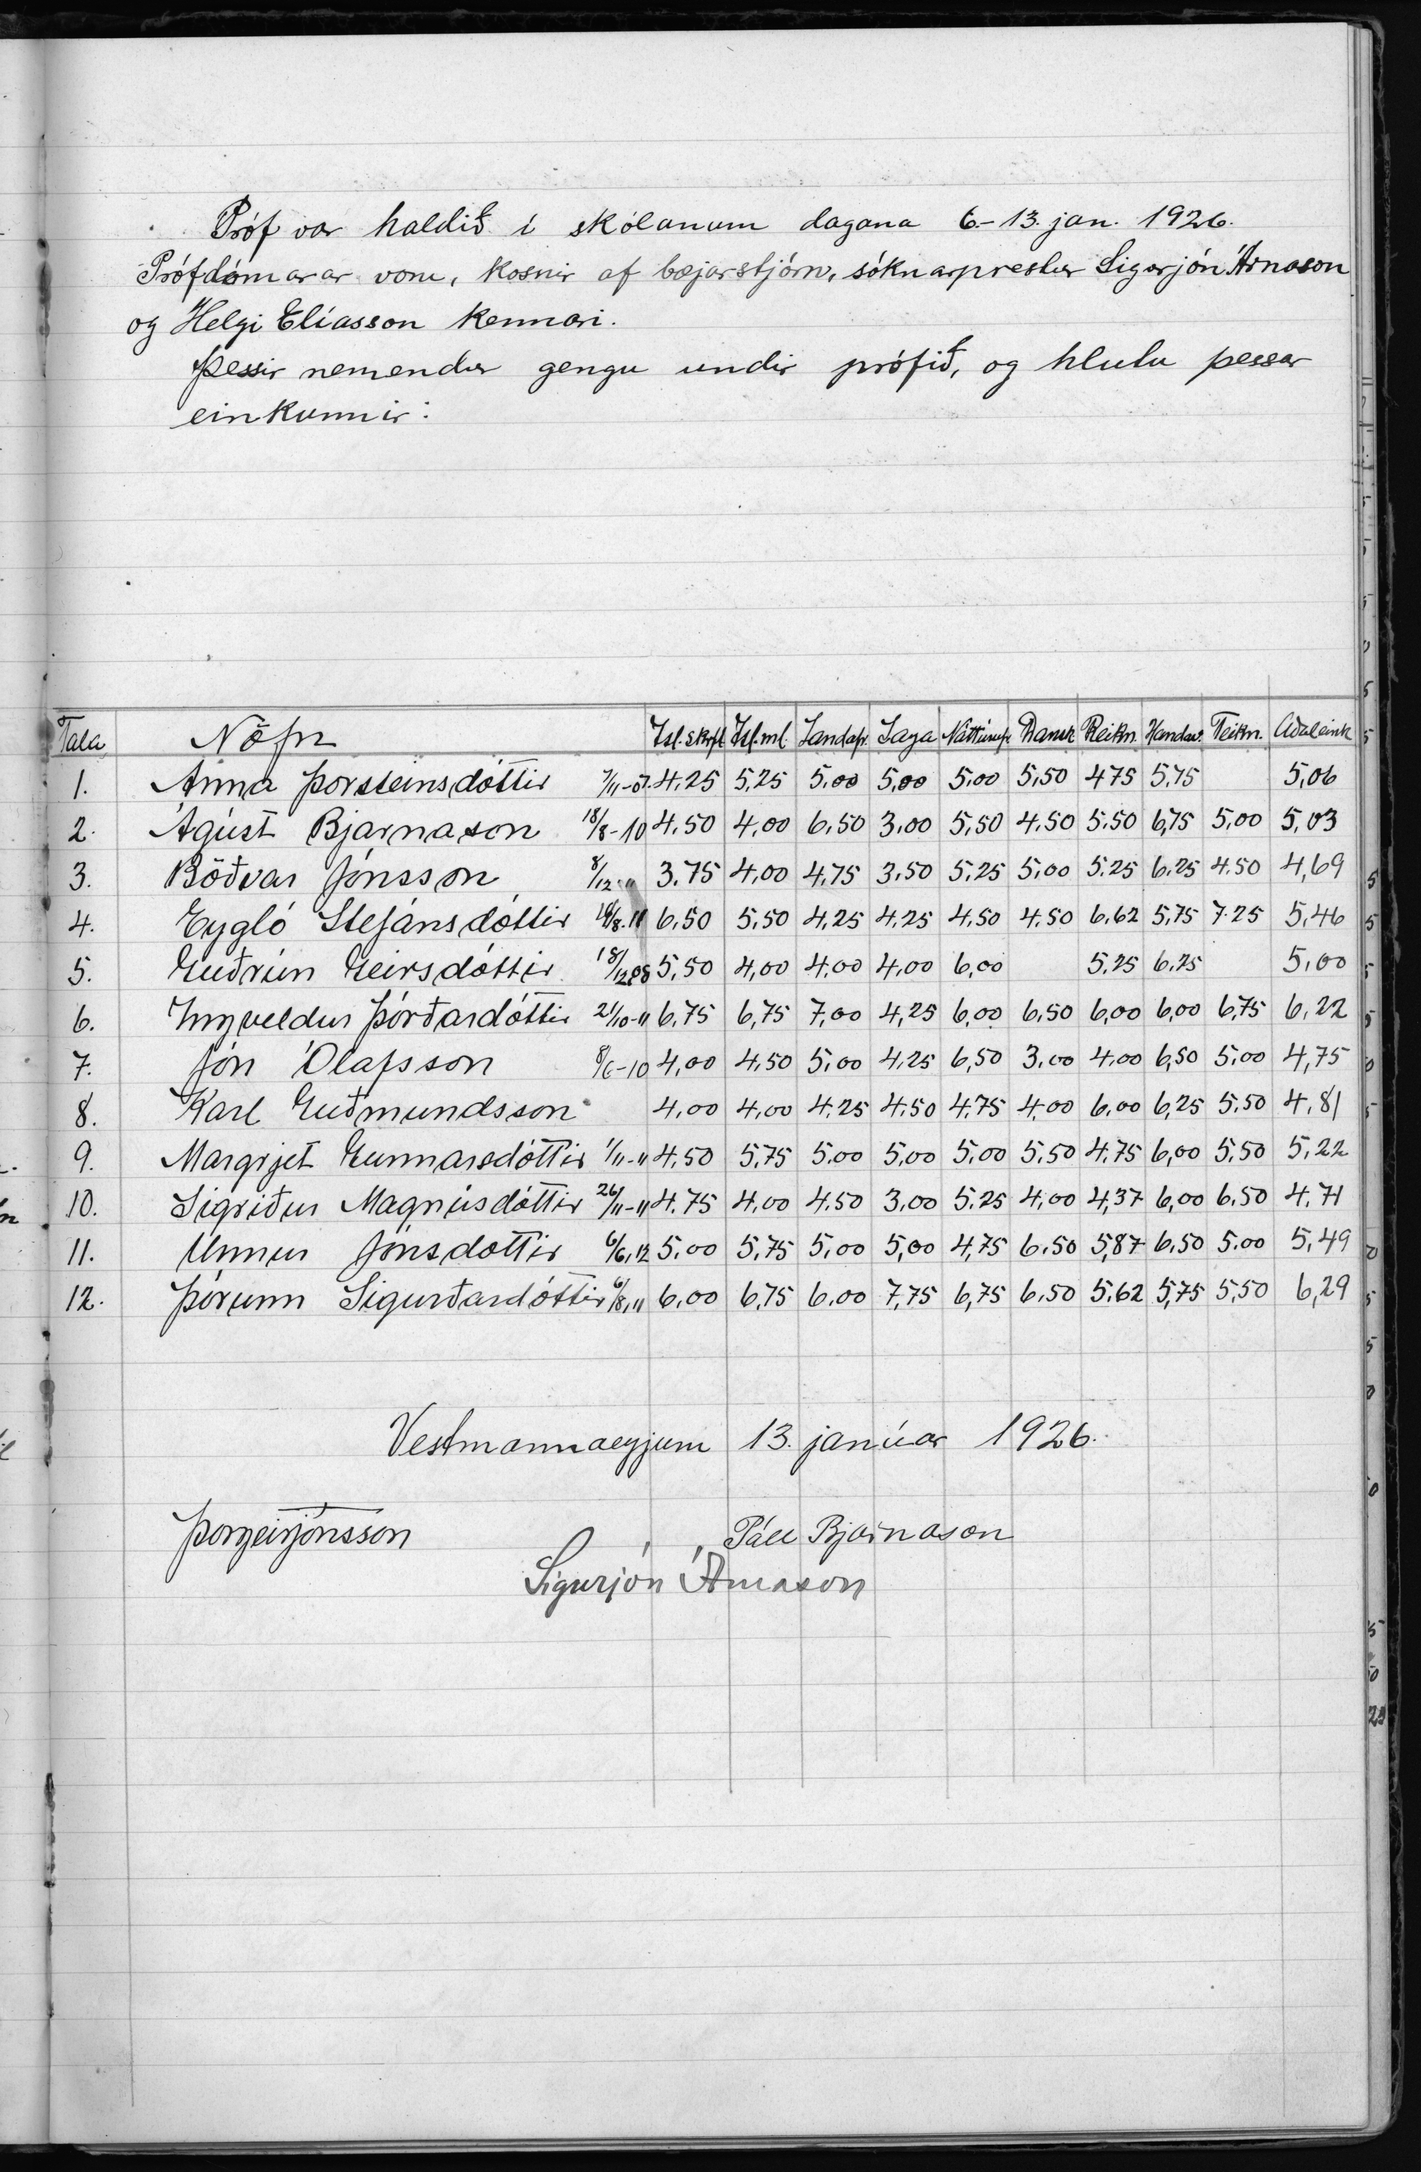 Próf var haldið í skólanum dagana 6.-13. jan. 1926.
Prófdómarar voru, kosnir af bæjarstjórn, sóknarprestur Sigurjón Árnason
og Helgi Elíasson kennari.
Þessir nemendur gengu undir prófið, og hlutu þessar
einkunnir:
Tala Nöfn Ísl. skrifl Ísl. ml. Landafr. Saga Náttúrufr. Dansk Reikn. Handav. Teikn. Aðaleink
1. Anna Þorsteinsdóttir 4,25 5,25 5,00 5,00 5,00 5,50 4,75 5,75 5,06
2. Ágúst Bjarnason 18/8-10 4,50 4,00 6,50 3,00 5,50 4,50 5,50 6,75 5,00 5,03
3. Böðvar Jónsson 8/12-11 3,75 4,00 4,75 3,50 5,25 5,00 5,25 6,25 4,50 4,69
4. Eygló Stefánsdóttir 6,50 5,50 4,25 4,25 4,50 4,50 6,62 5,75 7,25 5,46
5. Guðrún Geirsdóttir 18/12,08 5,50 4,00 4,00 4,00 6,00 5,25 6,25 5,00
6. Ingveldur Þórðardóttir 21/10-11 6,75 6,75 7,00 4,25 6,00 6,50 6,00 6,00 6,75 6,22
7. Jón Ólafsson 8/6-10 4,00 4,50 5,00 4,25 6,50 3,00 4,00 6,50 5,00 4,75
8. Karl Guðmundsson 4,00 4,00 4,25 4,50 4,75 4,00 6,00 6,25 5,50 4,81
9. Margrjet Gunnarsdóttir 1/11-11 4,50 5,75 5,00 5,00 5,00 5,50 4,75 6,00 5,50 5,22
10. Sigríður Magnúsdóttir 26/11-11 4,75 4,00 4,50 3,00 5,25 4,00 4,37 6,00 6,50 4,71
11. Unnur Jónsdóttir 6/6,12 5,00 5,75 5,00 5,00 4,75 6,50 5,87 6,50 5,00 5,49
12. Þórunn Sigurðardóttir 6/8,11 6,00 6,75 6,00 7,75 6,75 6,50 5,62 5,75 5,50 6,29
Vestmannaeyjum 13. janúar 1926.
Þorgeir Jónsson Páll Bjarnason
Sigurjón Árnason